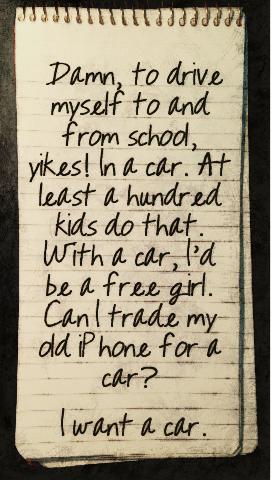 Damn, to drive
myself to and
from school,
yikes! In a car. At
least a hundred
kids do that.
With a car, I'd
be a free girl.
Can I trade my
old iPhone for a
car?
I want a car.